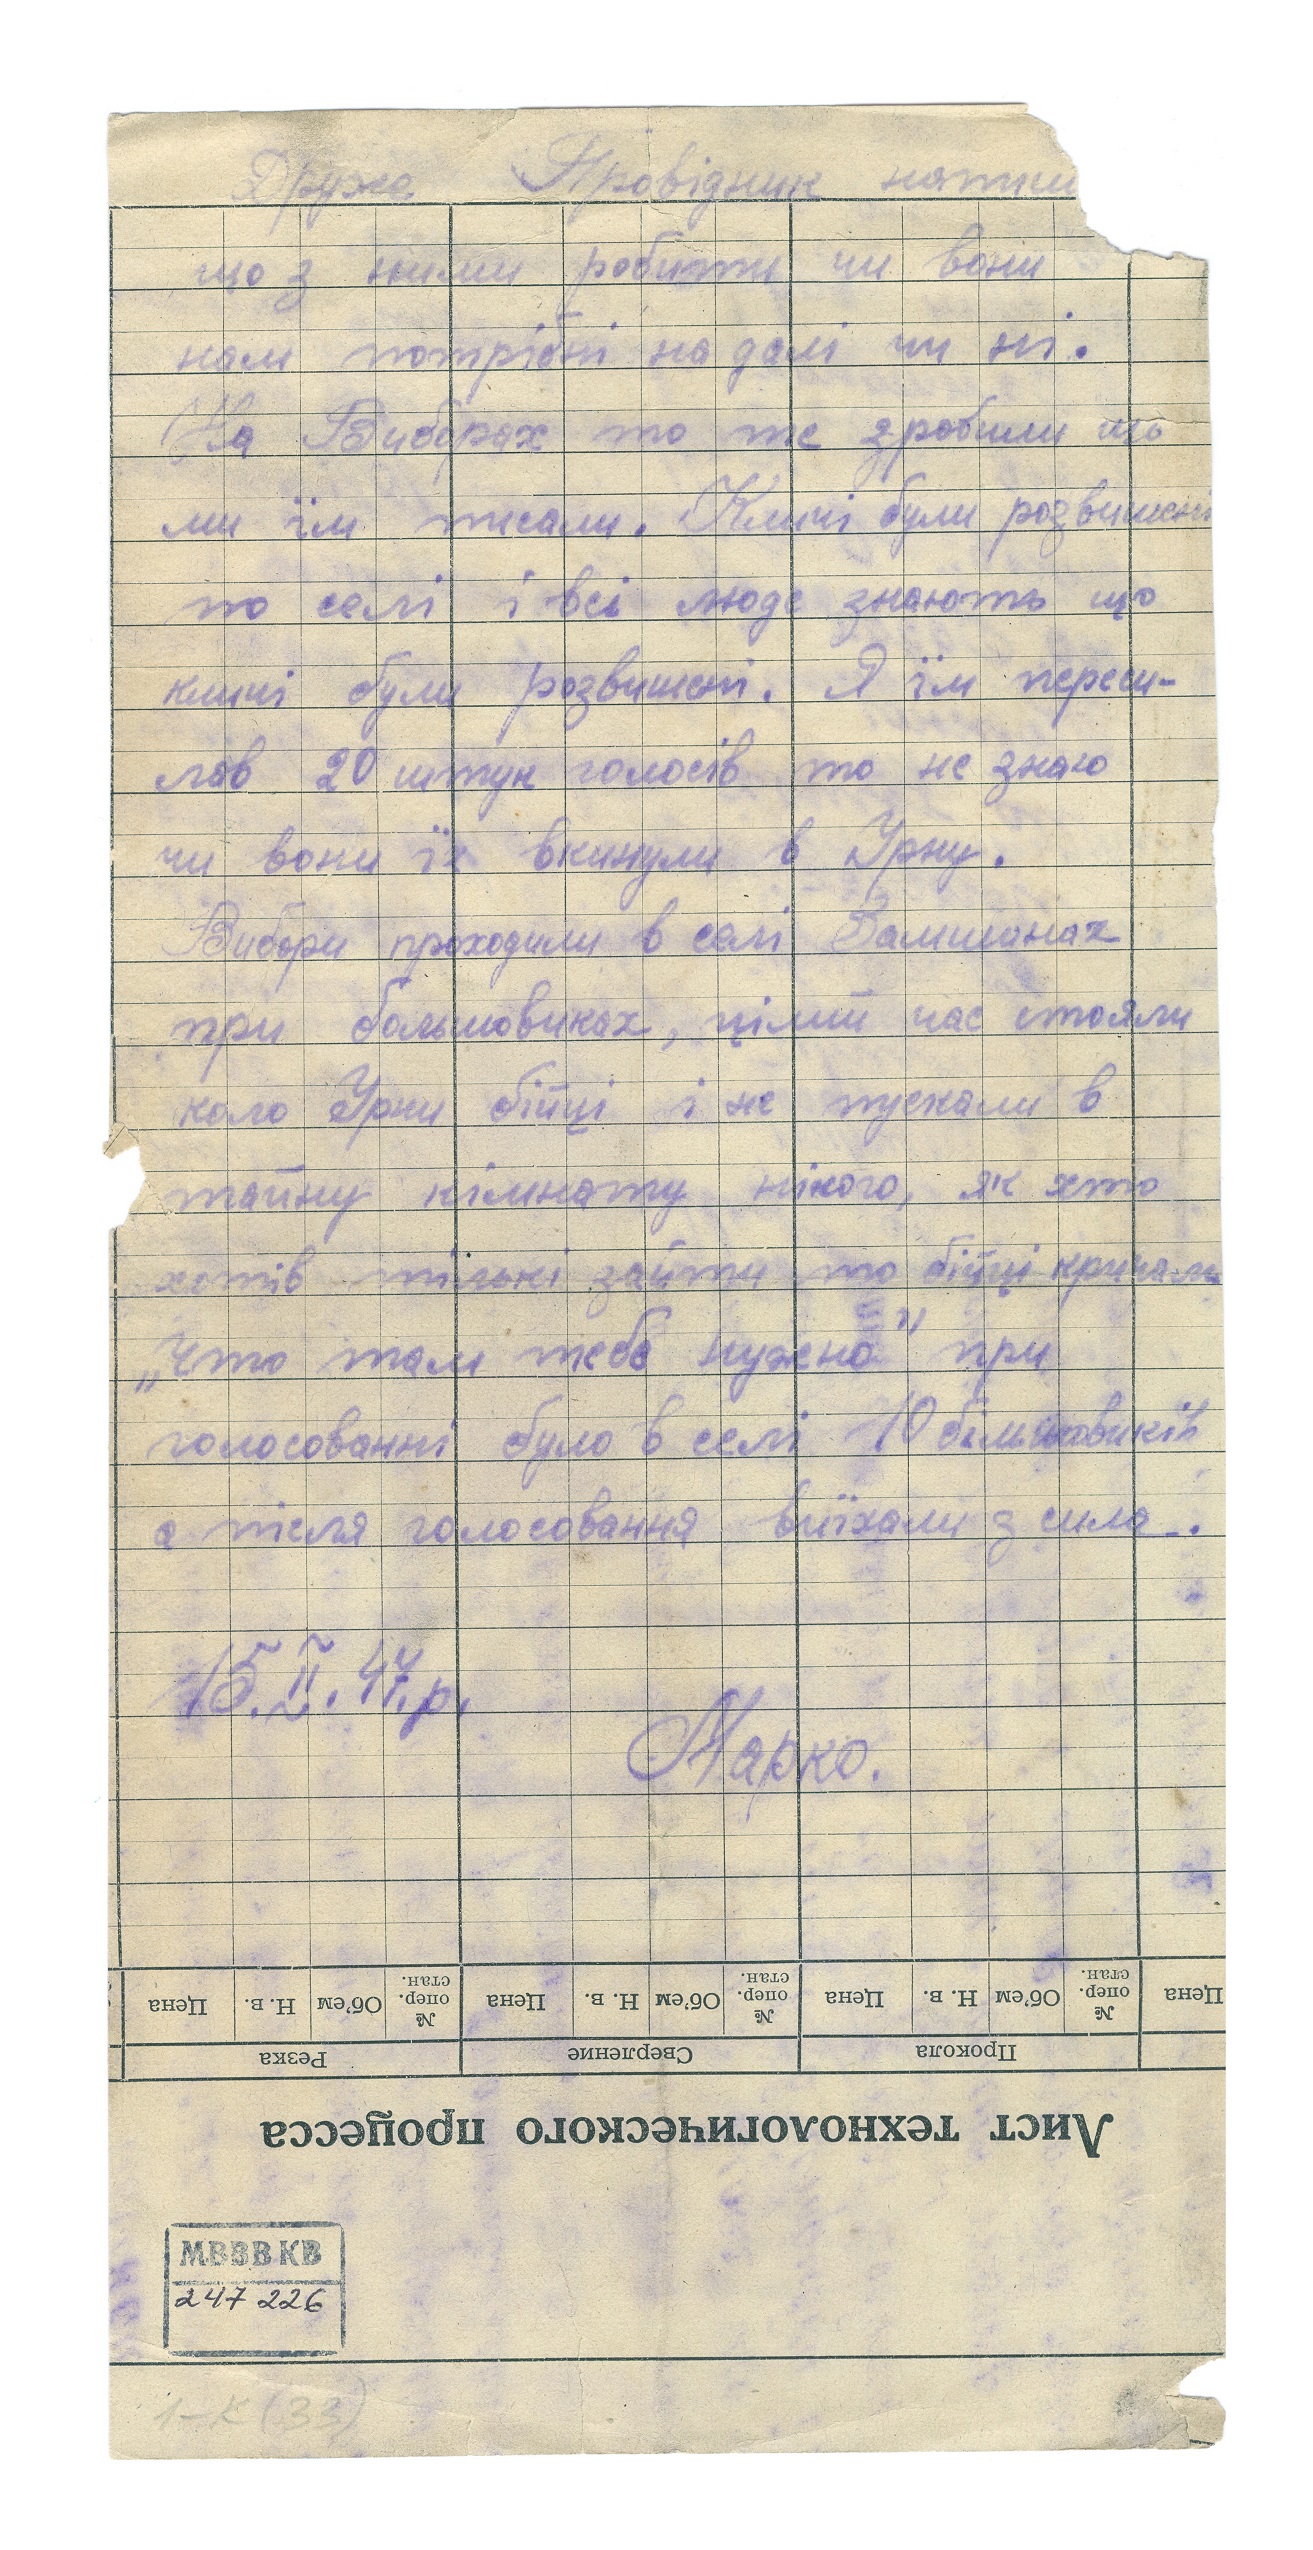 Друже Провідник напиш
що з ними робити чи вони
нам потрібні на далі чи ні.
На Виборах то те зробили що
ми їм писали. Кличі були розвишені
по селі і всі люде знають що
кличі були розвишені. Я їм переси-
лав 20 штук голосів то не знаю
чи вони їх вкинули в Урну.
Вибори проходили в селі
при большовиках, цілий час стояли
коло Урни бійці і не пускали в
тайну кімнату нікого, як хто
хотів тількі зайти то бійці кричали
„Что там тебе нужно" при
голосованні було в селі 10 більшовиків
а після голосовання виїхали з сила.
15.II.47.р.
Марко.
Цена Н. в. Об'ем № опер. стан. Цена Н. в. Об'ем № опер. стан. Цена Н. в. Об'ем № опер. стан. Цена
Резка Сверление Прокола
Лист технологического процесса
МВЗВКВ
247 226
1-К (33)